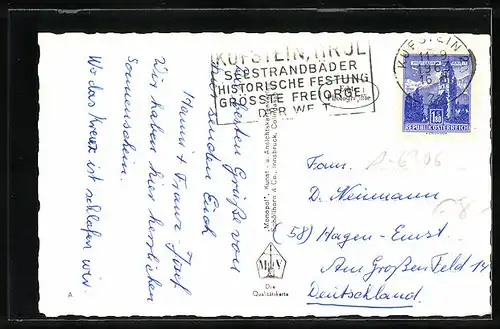 KUFSTEIN, TIROL
SEESTRANDBÄDER
HISTORISCHE FESTUNG
GRÖSSTE FREIORGEL
DER WELT
KUFSTEIN
1.80
REPUBLIK ÖSTERREICH
besten Grüße von
hier senden Euch
Hanni + Franz-Josef
Wir haben hier herrlichen
Sonnenschein.
Wo das Kreuz ist schlafen wir.
"Monopol", Kunst- u. Ansichtskarten
Schöllhorn & Co., Innsbruck,
Die
Qualitätskarte
A
Fam.
D. Niemann
(58) Hagen-Emst
Am Großen Feld 14
Deutschland